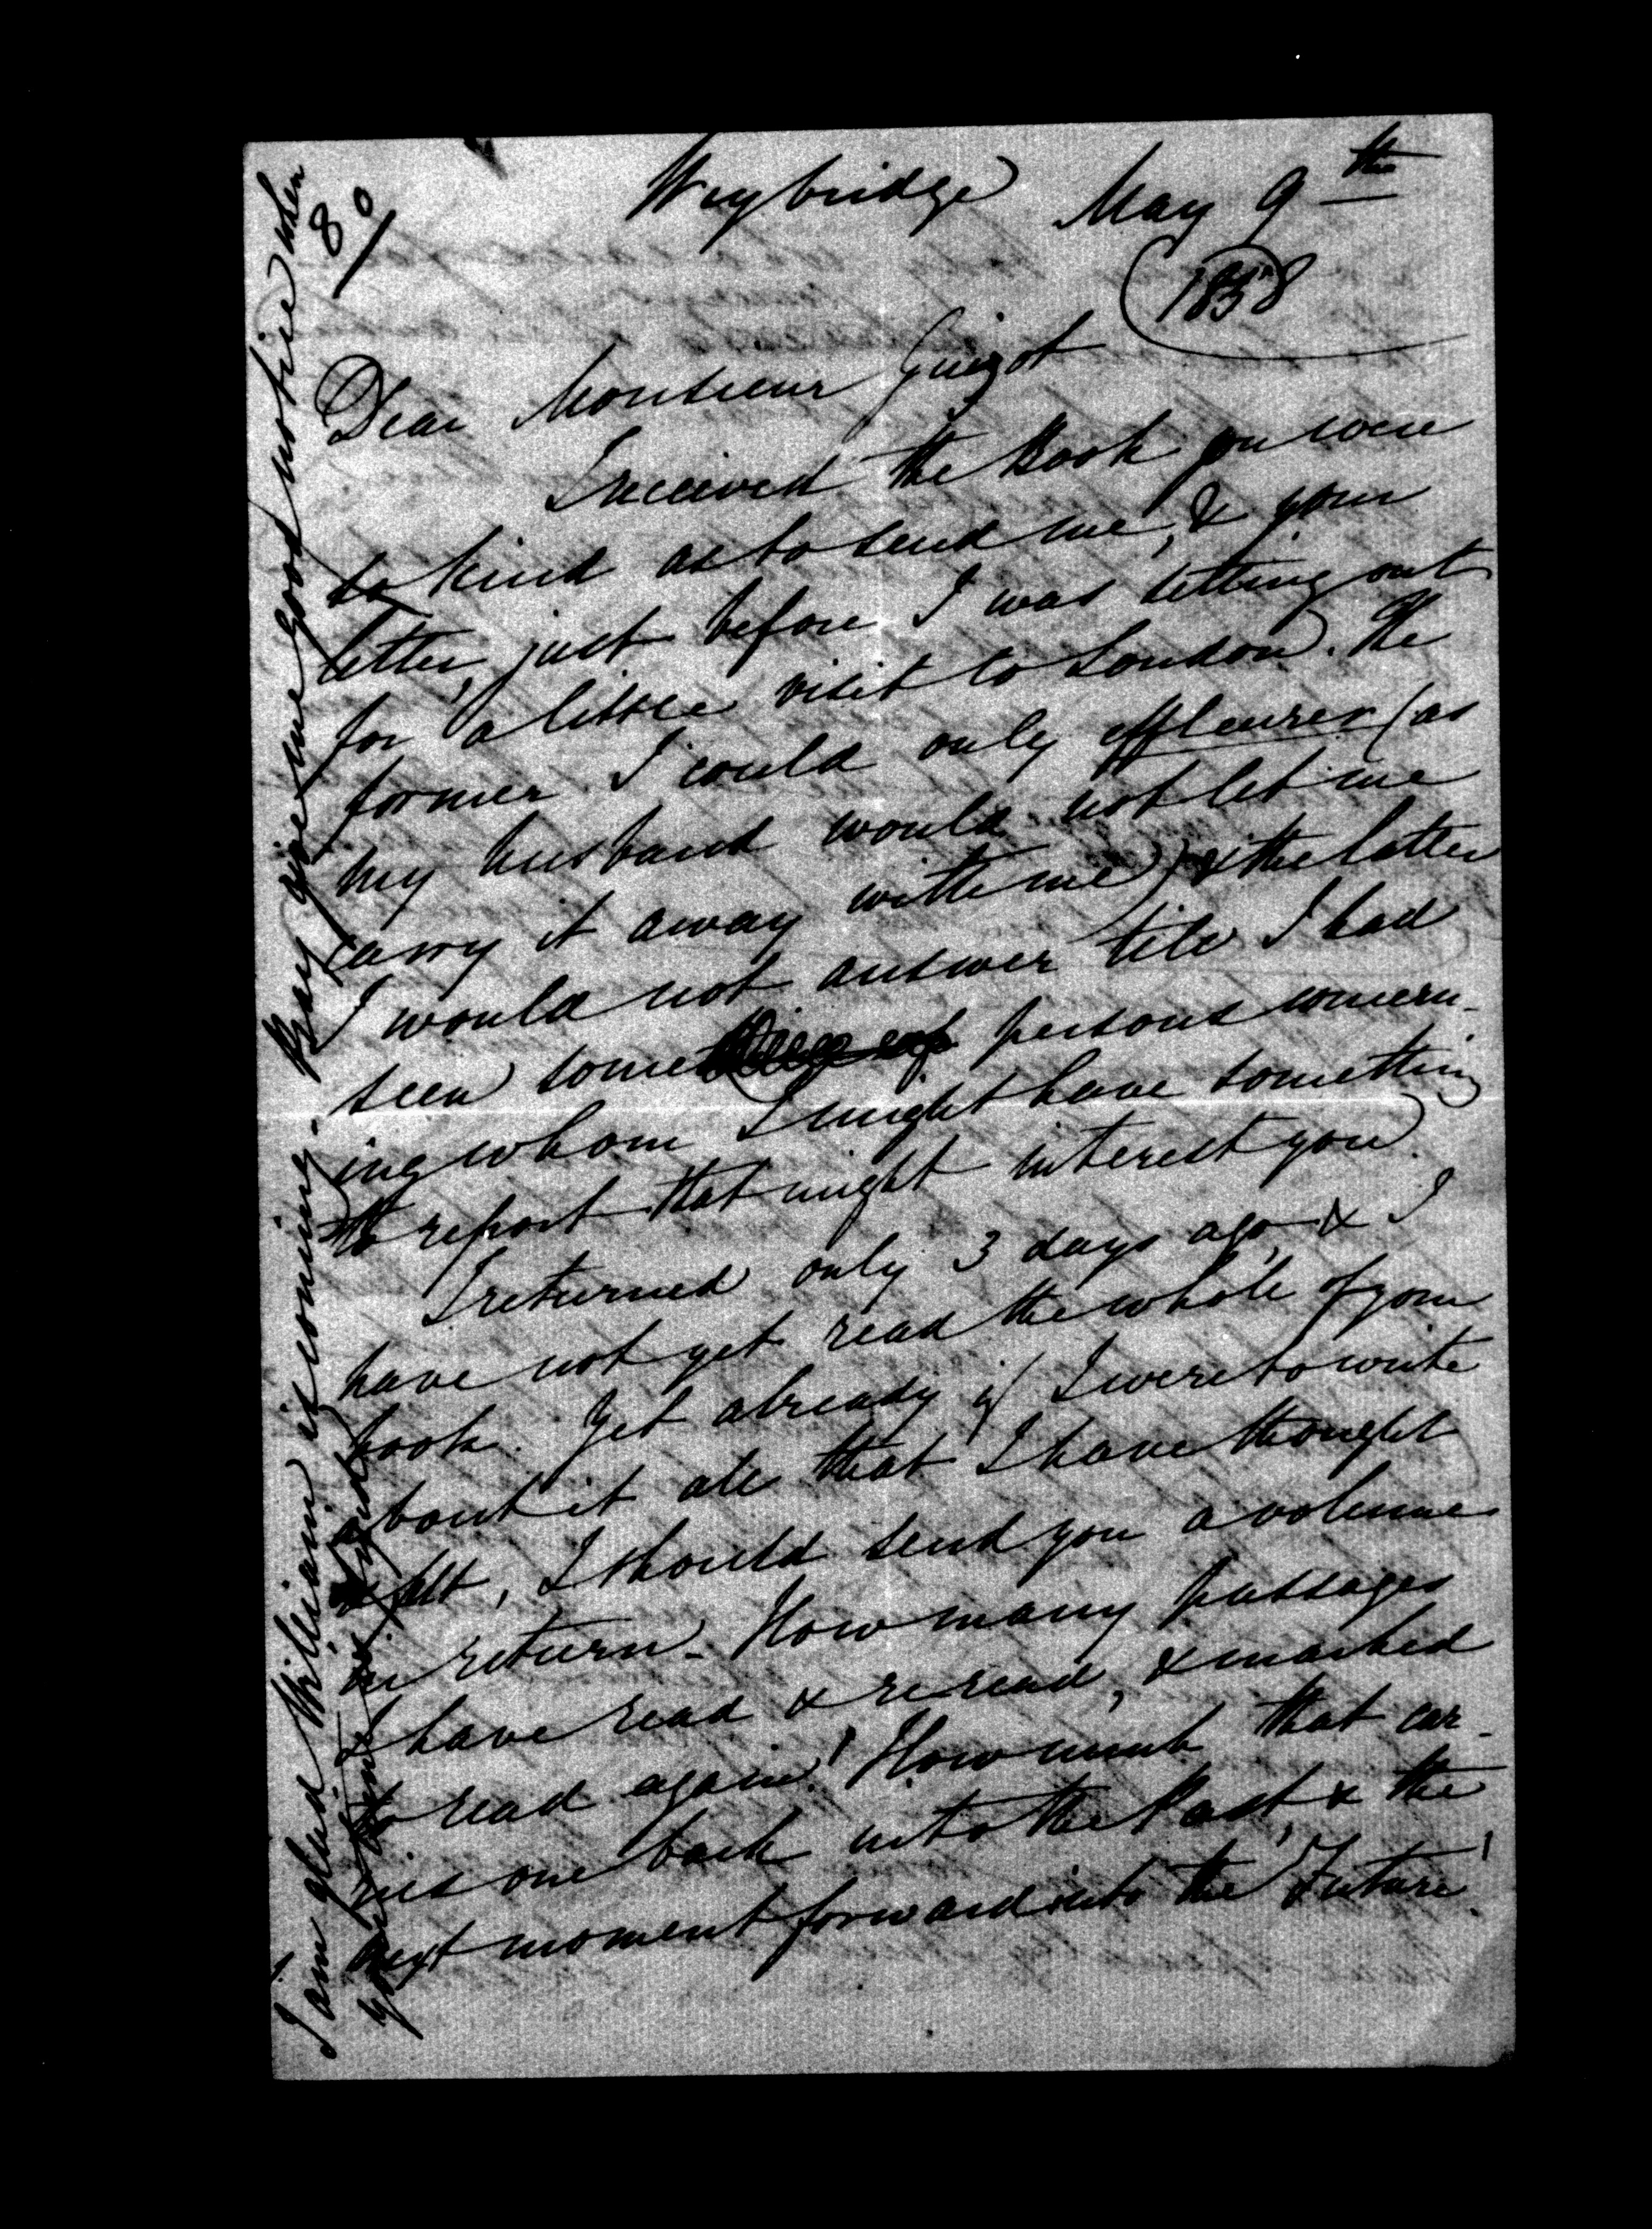 80/
Weybridge May 9th
1858
Dear Monsieur Guizot
I received the Book you were
so kind as to send me, & your
letter, just before I was setting out
for a little visit to London. The
former I could only effleurer (as
my husband would not let me
carry it away with me) & the latter
I would not answer till I had
seen some persons concern-
ing whom I might have something
to report that might interest you.
I returned only 3 days ago, & I
have not yet read the whole of your
book. Yet already if I were to write
about it all that I have thought
& felt, I should send you a volume
in return. How many passages
I have read & re-read, & marked
to read again! How much that car-
ries one back into the Past, & the
next moment forward into the Future!
I am glad William is coming. Pray give me good notice when